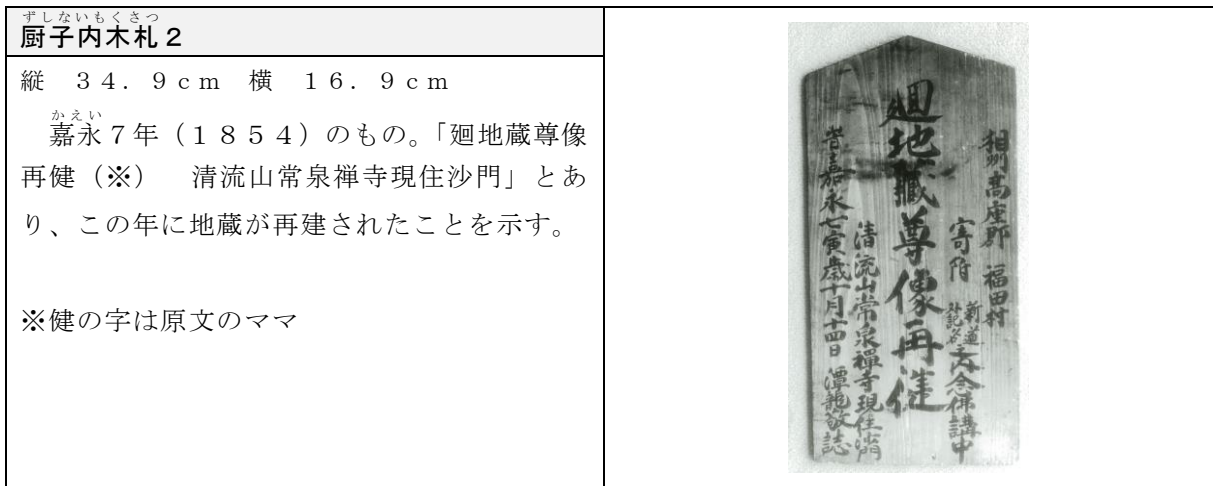 ずしないもくさつ
厨子内木札2
縦 34.9cm 横 16.9cm
かえい
嘉永7年(1854)のもの。「廻地蔵尊像
再健(※) 清流山常泉禅寺現住沙門」とあ
り、この年に地蔵が再建されたことを示す。
※健の字は原文のママ
相州高座郡 福田村
寄附 新道 念佛講中
廻地蔵尊像再健
清流山常泉禪寺現住沙門
嘉永七寅歳十月十四日 潭龍敬誌